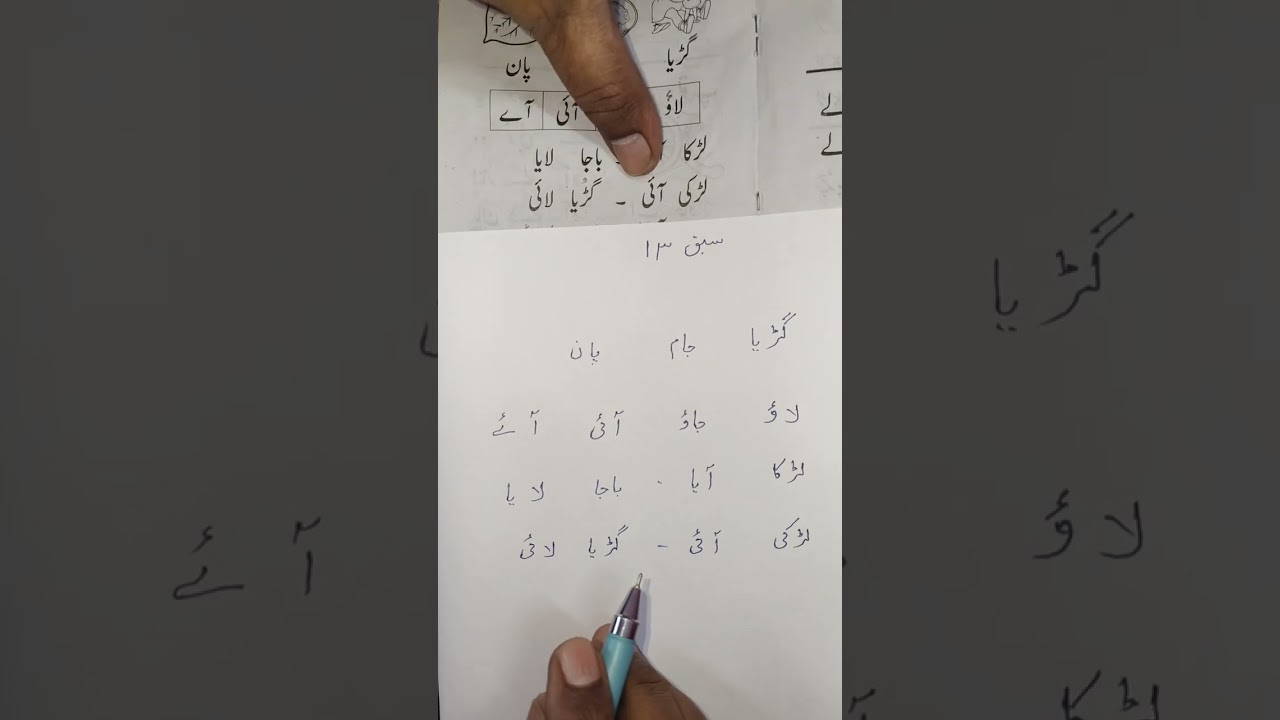 گڑیا پان
لاؤ آئی آے
لڑکا باجا لایا
لڑکی آئی ۔ گڑیا لائی
سبق ۱۳
گڑیا جام پان
لاؤ جاؤ آئی آئے
لڑکا آیا ۔ باجا لایا
لڑکی آئی ۔ گڑیا لائی